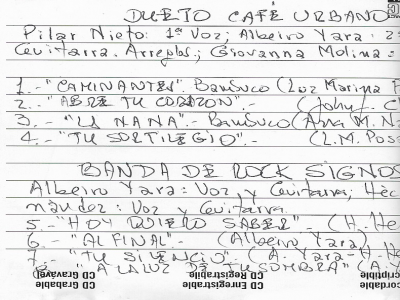 DUETO CAFÉ URBANO
Pilar Nieto: 1ª Voz; Albeiro Yara: 2ª
Guitarra. Arreglos; Giovanna Molina:
1.- "CAMINANTES". Bambuco (Luz Marina P
2.- "ABRE TU CORAZON".- (John J. C
3.- "LA NANA".- Bambuco (Ana M. N
4.- "TU SORTILEGIO".- (L.M. Pos
BANDA DE ROCK SIGNOS
Albeiro Yara: Voz y Guitarra; Héc
nández: Voz y Guitarra
5.- "HOY QUIERO SABER".- (H. He
6.- "AL FINAL".- (Albeiro Yara)
7.- "TU SILENCIO".- (A. Yara-H. He
8.- A LA LUZ DE TU SOMBRA" (A.
CD Grabable CD Enregistrable
CD Gravável CD Registrabile